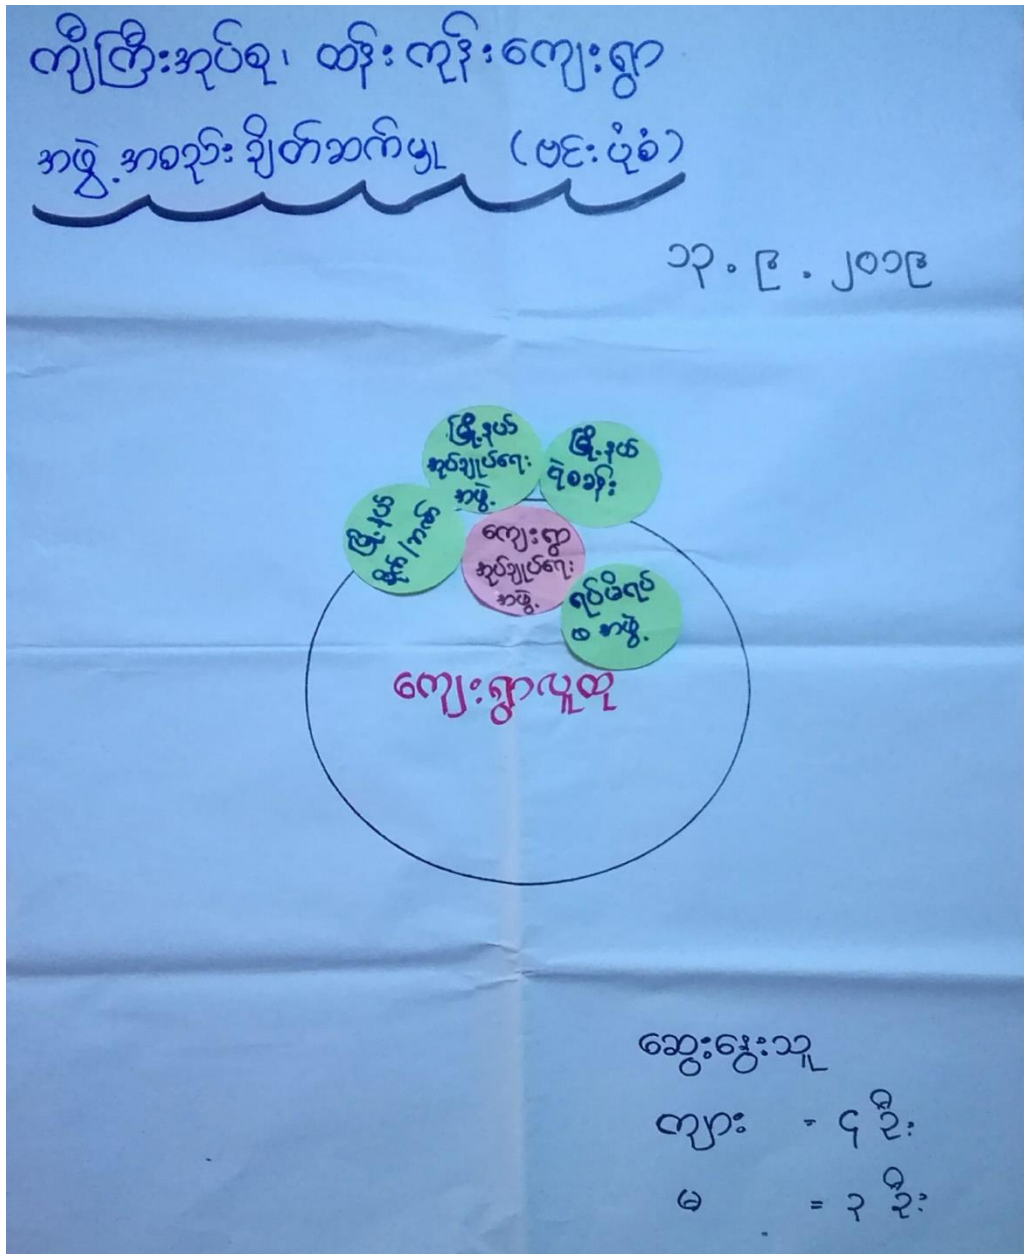 ကျီကြီးအုပ်စု၊ ထန်းကုန်းကျေးရွာ
အဖွဲ့အစည်းချိတ်ဆက်မှု (ဗင်းပုံစံ)
၁၃.၉.၂၀၁၉
မြို့နယ်
အုပ်ချုပ်ရေး
အဖွဲ့
မြို့နယ်
ရဲစခန်း
မြို့နယ်
ကျေးရွာ
အုပ်ချုပ်ရေး
အဖွဲ့
ရပ်မိရပ်
ဖ အဖွဲ့
ကျေးရွာလူထု
ဆွေးနွေးသူ
ကျား = ၄ ဦး
မ = ၃ ဦး